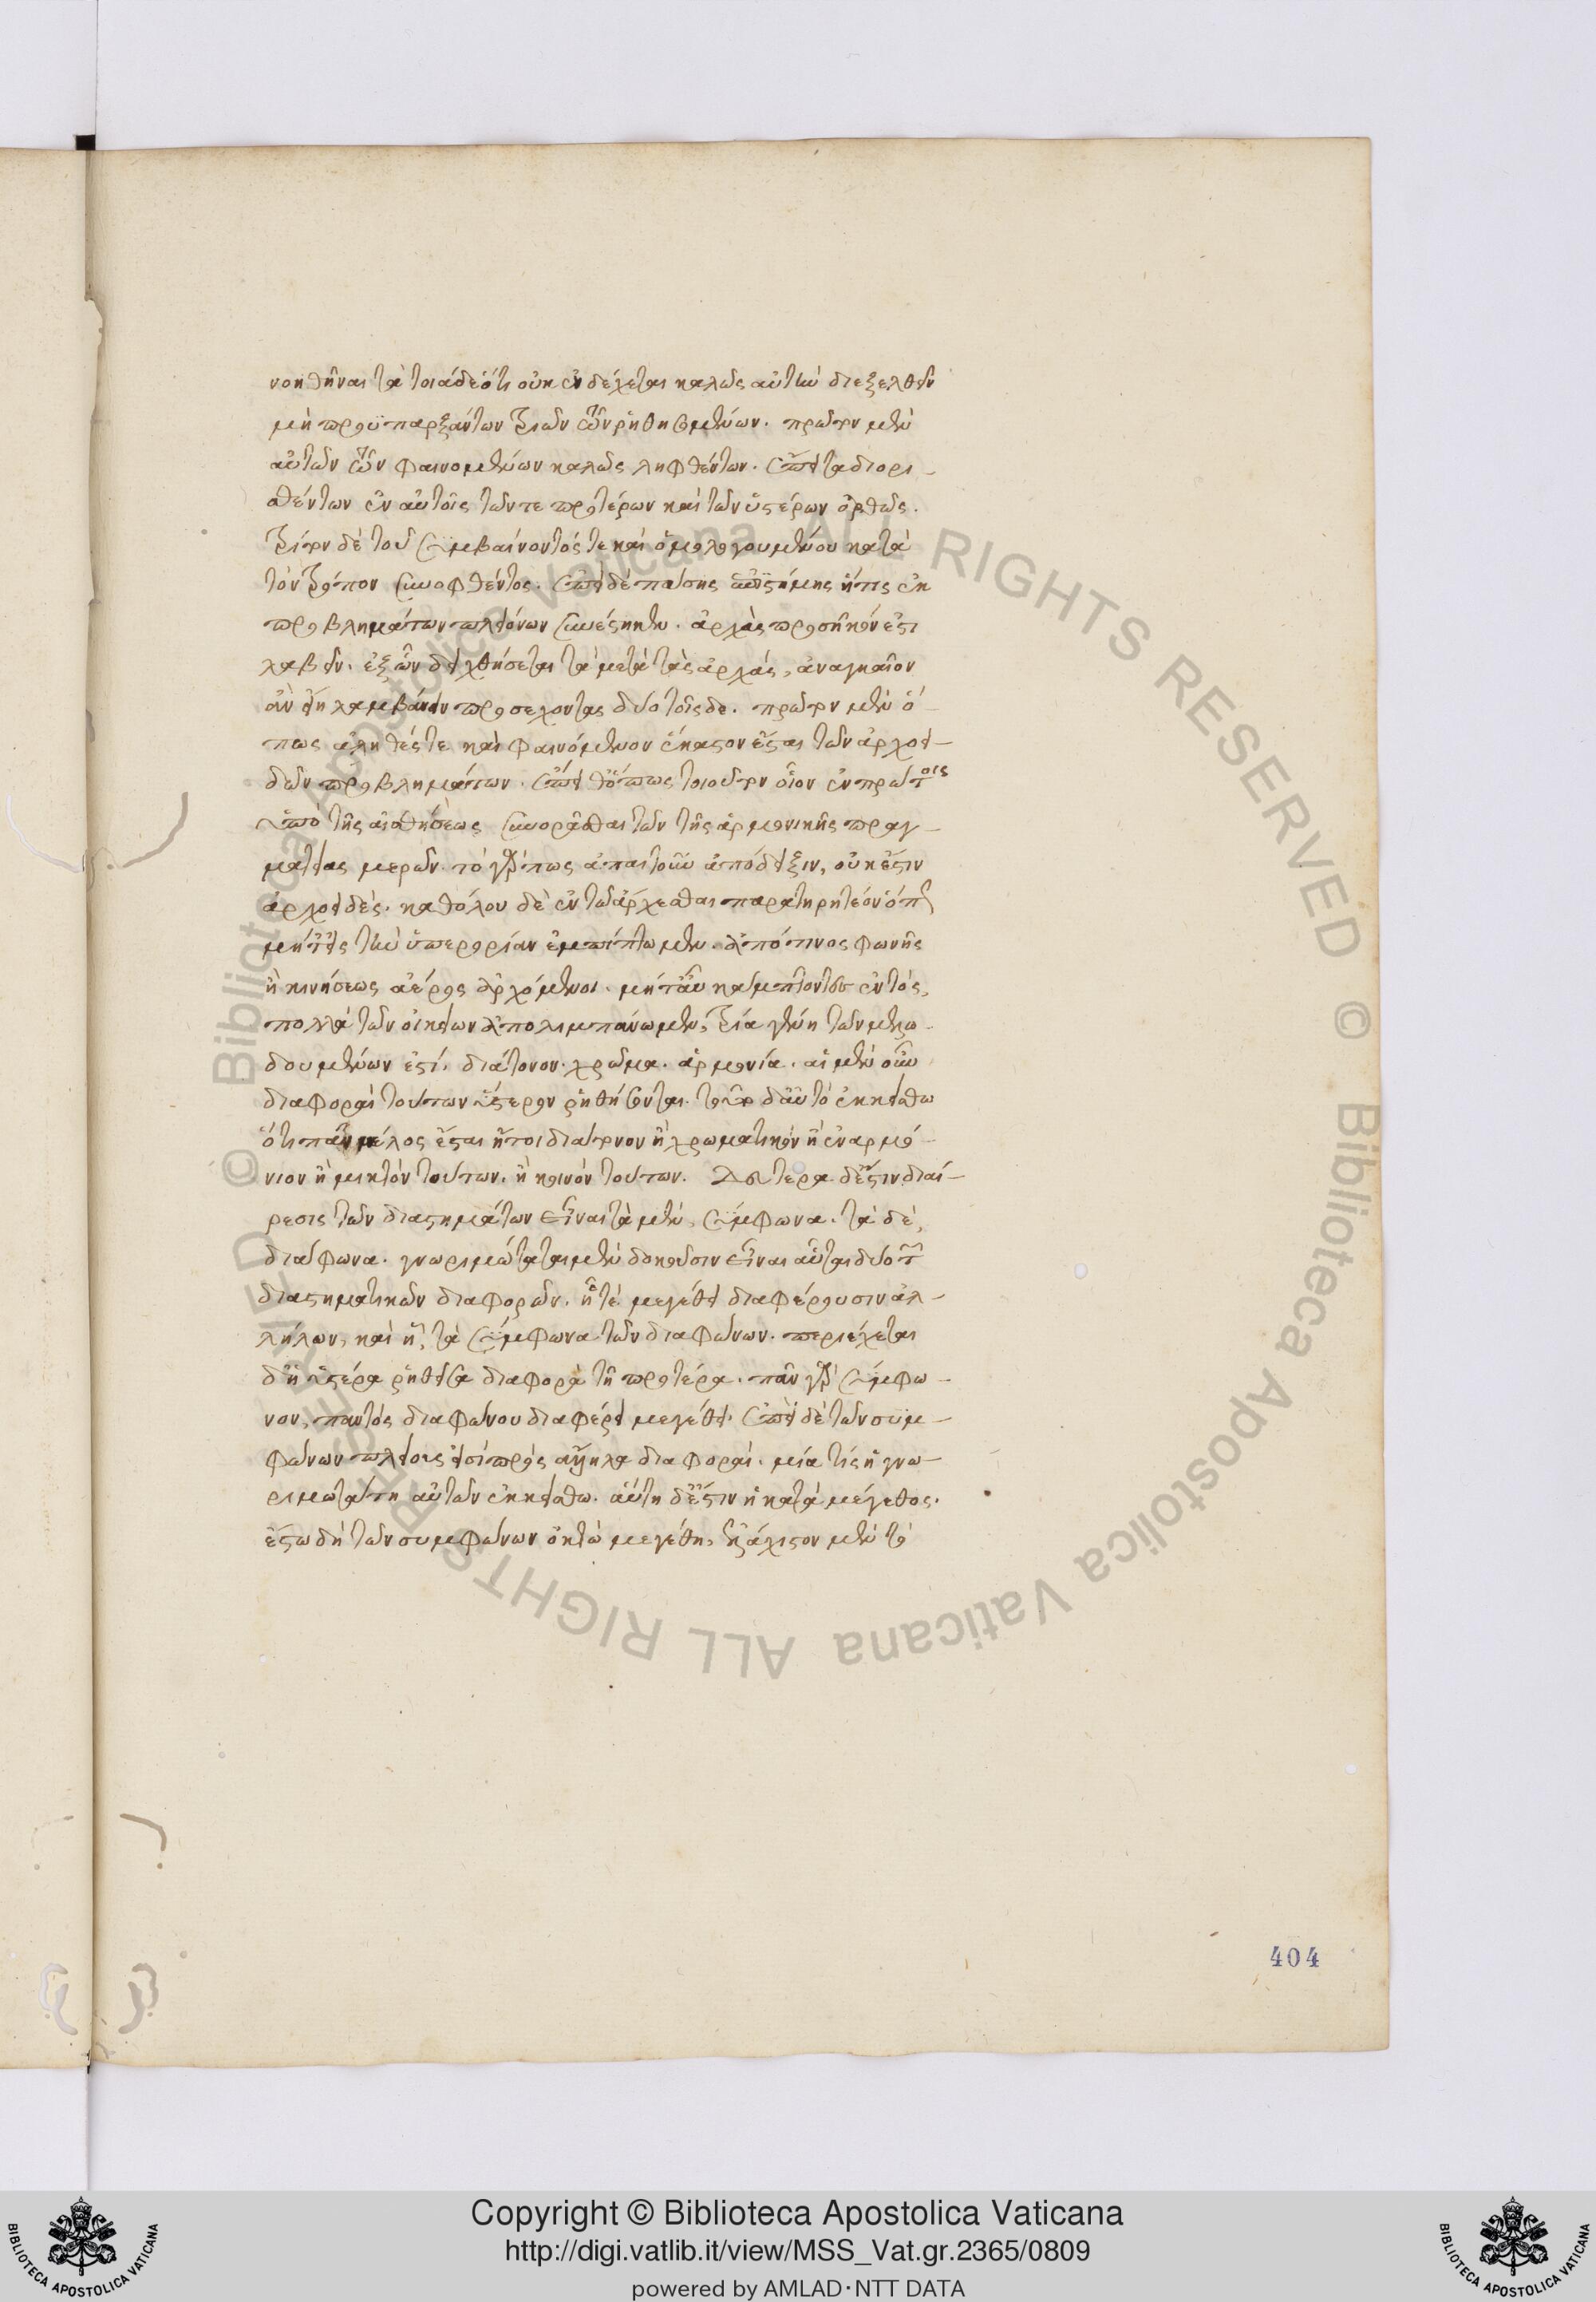 νοηθῆναι τὰ τοιάδε ὅτι οὐκ ἐνδέχεται καλῶς αὐτὴν διεξελθεῖν
μὴ προϋπαρξάντων τριῶν τῶν ῥηθησομένων. πρῶτον μὲν
αὐτῶν τῶν φαινομένων καλῶς ληφθέντων. ἔπειτα διορι-
σθέντων ἐν αὐτοῖς τῶν τε προτέρων καὶ τῶν ὑστέρων ὀρθῶς.
τρίτον δὲ τοῦ συμβαίνοντός τε καὶ ὁμολογουμένου κατὰ
τὸν τρόπον συνοφθέντος. ἐπεὶ δὲ πάσης ἐπιστήμης ἥτις ἐκ
προβλημάτων πλειόνων συνέστηκεν. ἀρχὰς προσῆκόν ἐστι
λαβεῖν. ἐξ ὧν δειχθήσεται τὰ μετὰ τὰς ἀρχάς, ἀναγκαῖον
ἂν εἴη λαμβάνειν προσέχοντας δύο τοῖσδε. πρῶτον μὲν ὅ-
πως ἀληθές τε καὶ φαινόμενον ἕκαστον ἔσται τῶν ἀρχοει-
δῶν προβλημάτων. ἔπειθ' ὅπως τοιοῦτον οἷον ἐν πρώτοις
ὑπὸ τῆς αἰσθήσεως συνορᾶσθαι τῶν τῆς ἁρμονικῆς πραγ-
ματείας μερῶν. τὸ γάρ πως ἀπαιτοῦν ἀπόδειξιν, οὐκ ἔστιν
ἀρχοειδές. καθόλου δὲ ἐν τῷ ἄρχεσθαι παρατηρητέον ὅπως
μήτ' εἰς τὴν ὑπερορίαν ἐμπίπτωμεν. ἀπό τινος φωνῆς
ἢ κινήσεως ἀέρος ἀρχόμενοι. μήτ' αὖ κάμπτοντες ἐντός,
πολλὰ τῶν οἰκείων ἀπολιμπάνωμεν, τρία γένη τῶν μελῳ-
δουμένων ἐστί. διάτονον. χρῶμα. ἁρμονία. αἱ μὲν οὖν
διαφοραὶ τούτων ὕστερον ῥηθήσονται. τοῦτο δ' αὐτὸ ἐκκείσθω
ὅτι πᾶν μέλος ἔσται ἤτοι διάτονον ἢ χρωματικὸν ἢ ἐναρμό-
νιον ἢ μικτὸν τούτων. ἢ κοινὸν τούτων. Δευτέρα δ' ἔστιν διαί-
ρεσις τῶν διαστημάτων εἶναι τὰ μὲν, σύμφωνα. τὰ δὲ,
διάφωνα. γνωριμώταται μὲν δοκοῦσιν εἶναι αὗται δύο τῶν
διαστηματικῶν διαφορῶν. ᾗ τε μεγέθει διαφέρουσιν ἀλ-
λήλων, καὶ ᾗ, τὰ σύμφωνα τῶν διαφώνων. περιέχεται
δ' ἡ ὑστέρα ῥηθεῖσα διαφορὰ τῇ προτέρᾳ. πᾶν γὰρ σύμφω-
νον, παντὸς διαφώνου διαφέρει μεγέθει. ἐπεὶ δὲ τῶν συμ-
φώνων πλείους εἰσὶ πρὸς ἄλληλα διαφοραί. μία τίς ἡ γνω-
ριμωτάτη αὐτῶν ἐκκείσθω. αὕτη δ' ἔστιν ἡ κατὰ μέγεθος.
ἔστω δὴ τῶν συμφώνων ὀκτὼ μεγέθη, ἐλάχιστον μὲν τὸ
404
Copyright © Biblioteca Apostolica Vaticana
http://digi.vatlib.it/view/MSS_Vat.gr.2365/0809
powered by AMLAD·NTT DATA
BIBLIOTECA APOSTOLICA VATICANA
BIBLIOTECA APOSTOLICA VATICANA
© Biblioteca Apostolica Vaticana ALL RIGHTS RESERVED
© Biblioteca Apostolica Vaticana ALL RIGHTS RESERVED